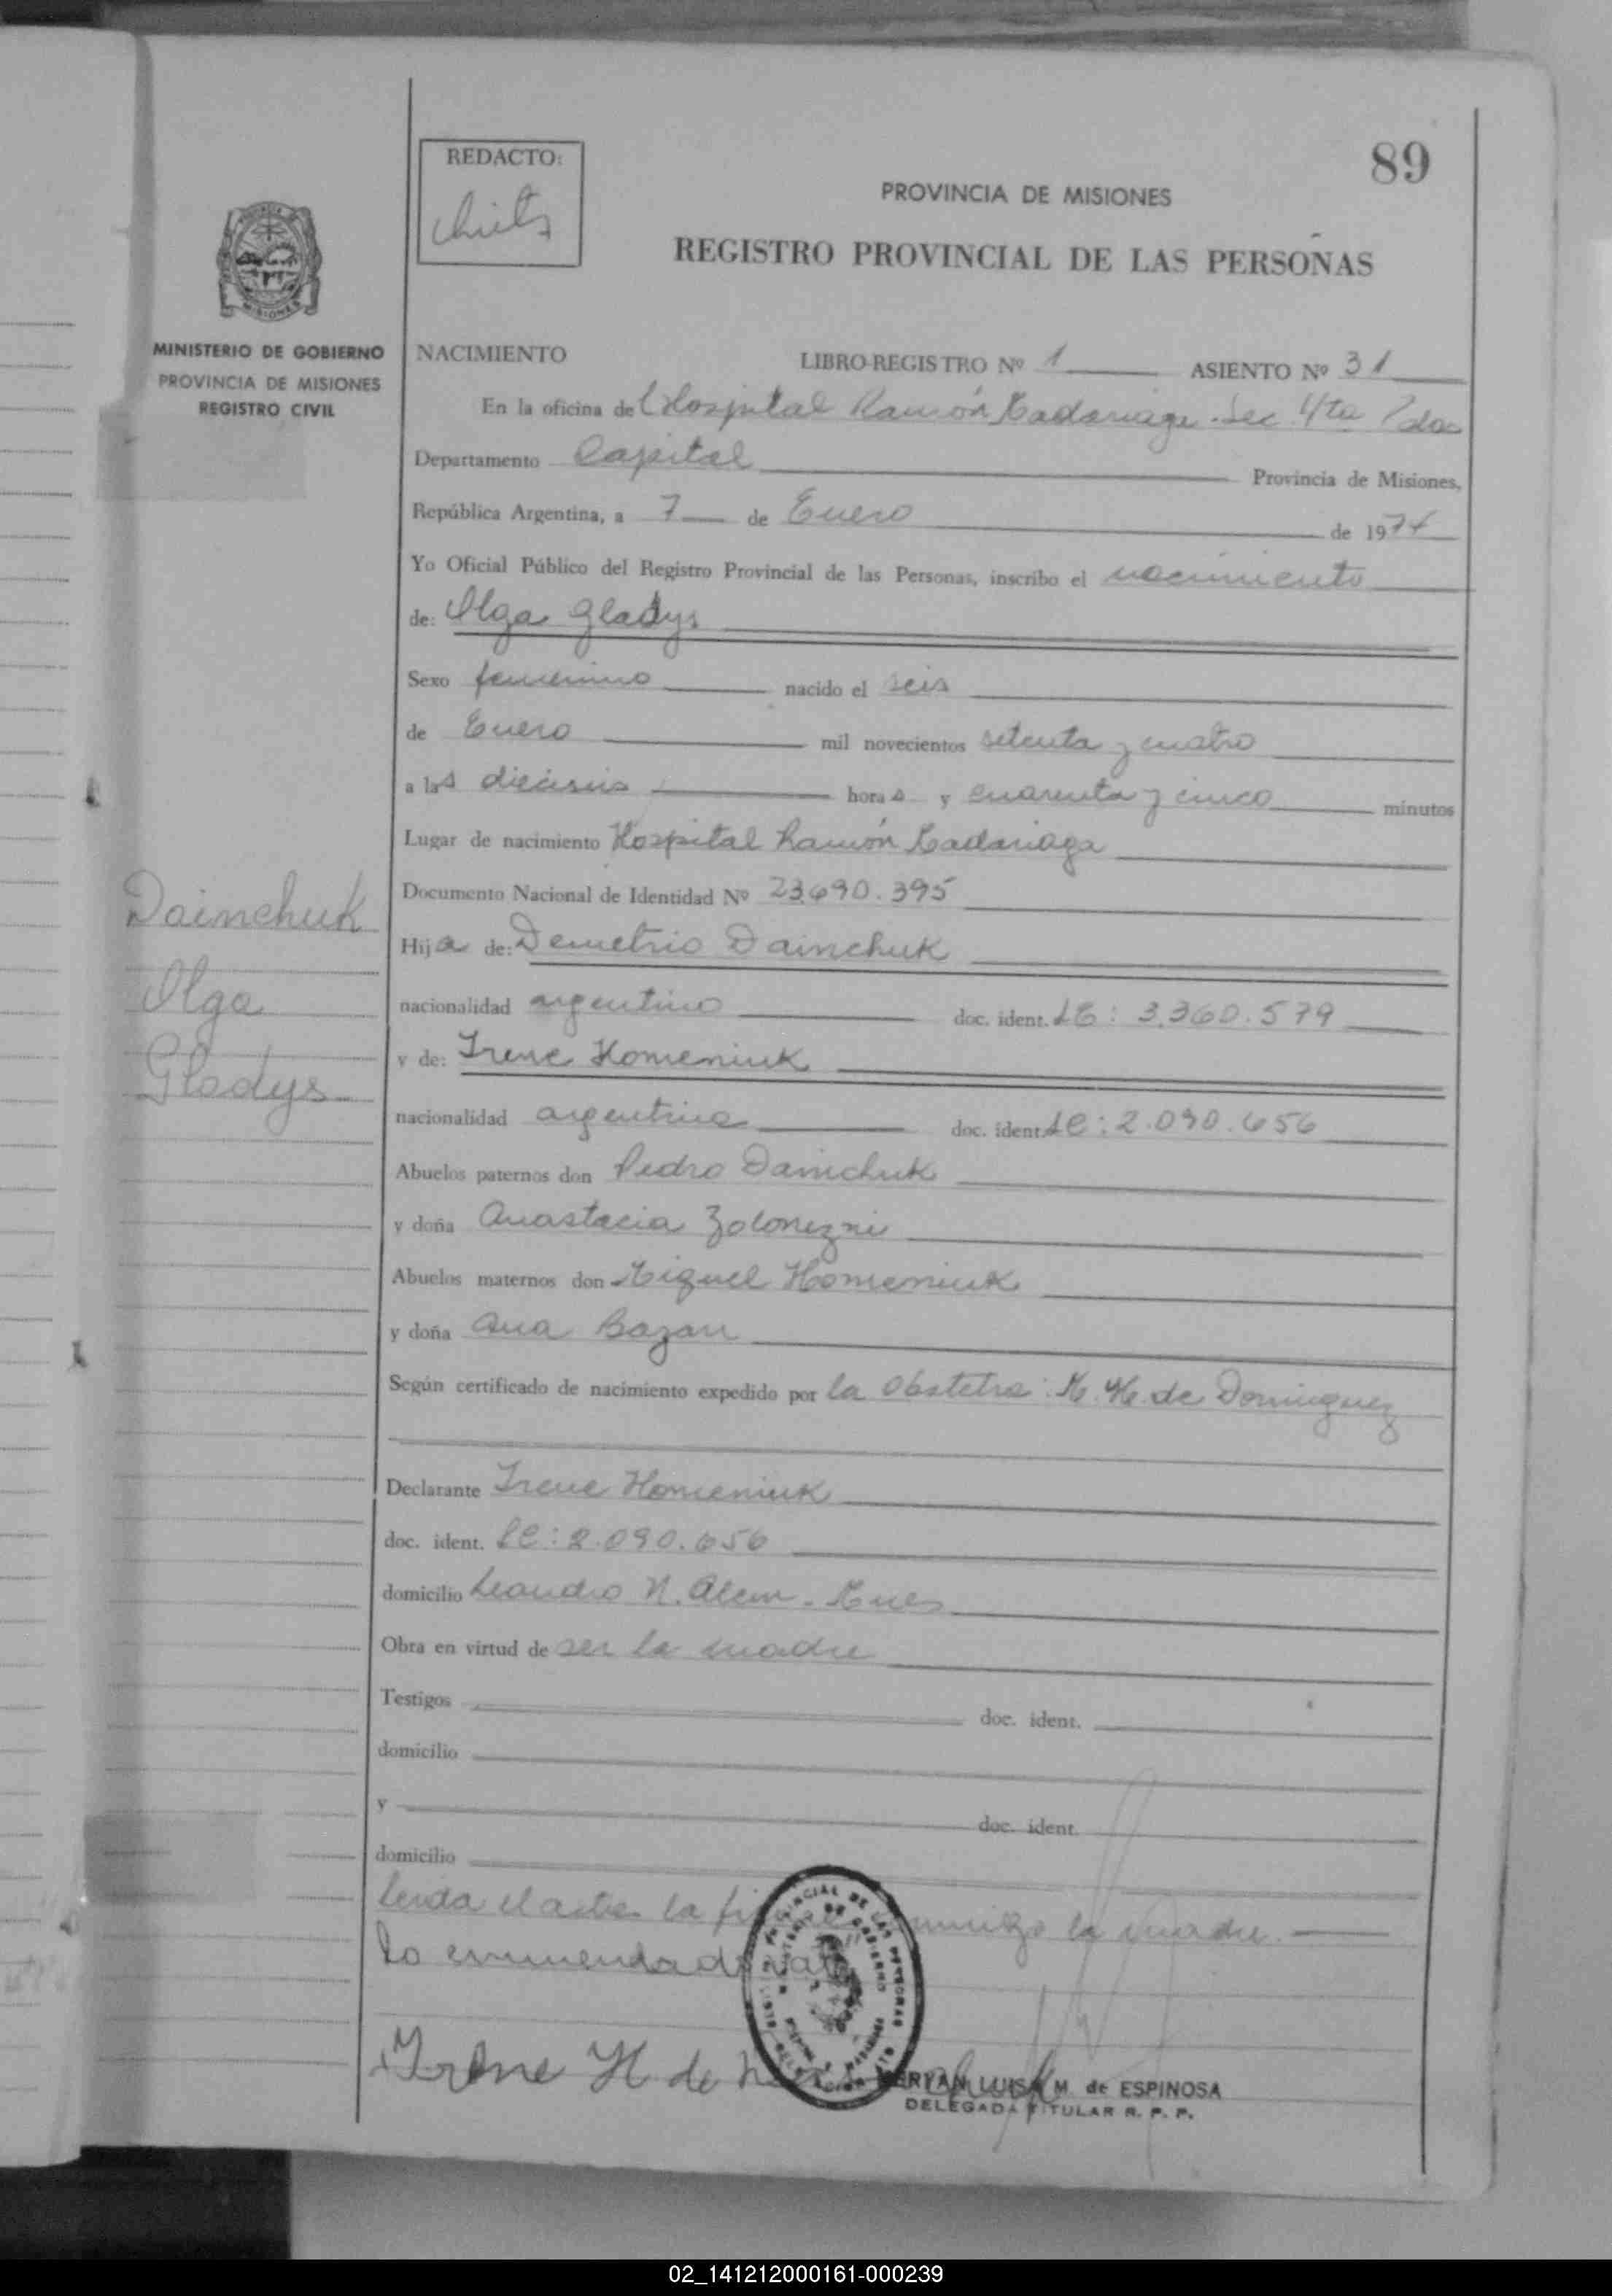 89
REDACTO:
PROVINCIA DE MISIONES
REGISTRO PROVINCIAL DE LAS PERSONAS
MINISTERIO DE GOBIERNO
PROVINCIA DE MISIONES
REGISTRO CIVIL
NACIMIENTO LIBRO-REGISTRO Nº 1 ASIENTO Nº 31
En la oficina del Hospital Ramón Madariaga - Sec. 4ta Pdas
Departamento Capital Provincia de Misiones,
República Argentina, a 7 de Enero de 1974
Yo Oficial Público del Registro Provincial de las Personas, inscribo el nacimiento
de: Olga Gladys
Sexo femenino nacido el seis
de Enero mil novecientos setenta y cuatro
a las dieciseis horas y cuarenta y cinco minutos
Lugar de nacimiento Hospital Ramón Madariaga
Documento Nacional de Identidad Nº 23.690.395
Dainchuk
Olga
Gladys
Hija de: Demetrio Dainchuk
nacionalidad argentino doc. ident. LE: 3.360.579
y de: Irene Homeniuk
nacionalidad argentina doc. ident. LC: 2.090.656
Abuelos paternos don Pedro Dainchuk
y doña Anastacia
Abuelos maternos don Miguel Homeniuk
y doña Ana Bazan
Según certificado de nacimiento expedido por la Obstetra: M. H. de Dominguez
Declarante Irene Homeniuk
doc. ident. LC: 2.090.656
domicilio Leandro N. Alem - Mnes
Obra en virtud de ser la madre
Testigos doc. ident.
domicilio
y doc. ident.
domicilio
Leida el acta la conmigo la madre.
Lo enmendado vale
Irene H. de
MERYAN LUISA M. de ESPINOSA
DELEGADA TITULAR R. P. P.
02_141212000161-000239